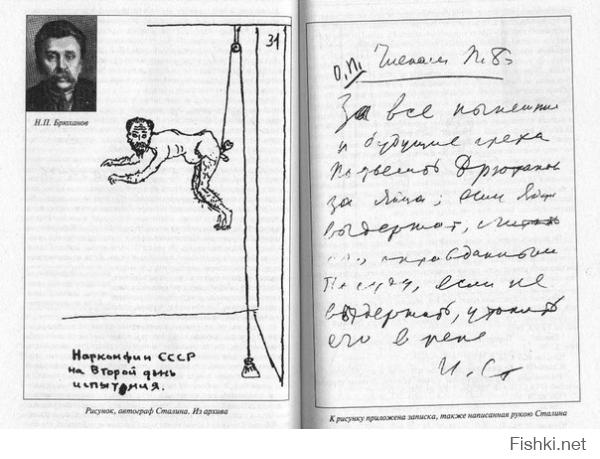 Н.П. Брюханов
31
Наркомфин СССР
на Второй день
испытания.
Рисунок, автограф Сталина. Из архива
Членам П.Б.
За все нынешние
и будущие грехи
подвесить Брюханова
за яйца; если яйца
выдержат, считать
оправданным
по суду, если не
выдержат, утопить
его в реке
И. Ст
К рисунку приложена записка, также написанная рукою Сталина
Fishki.net